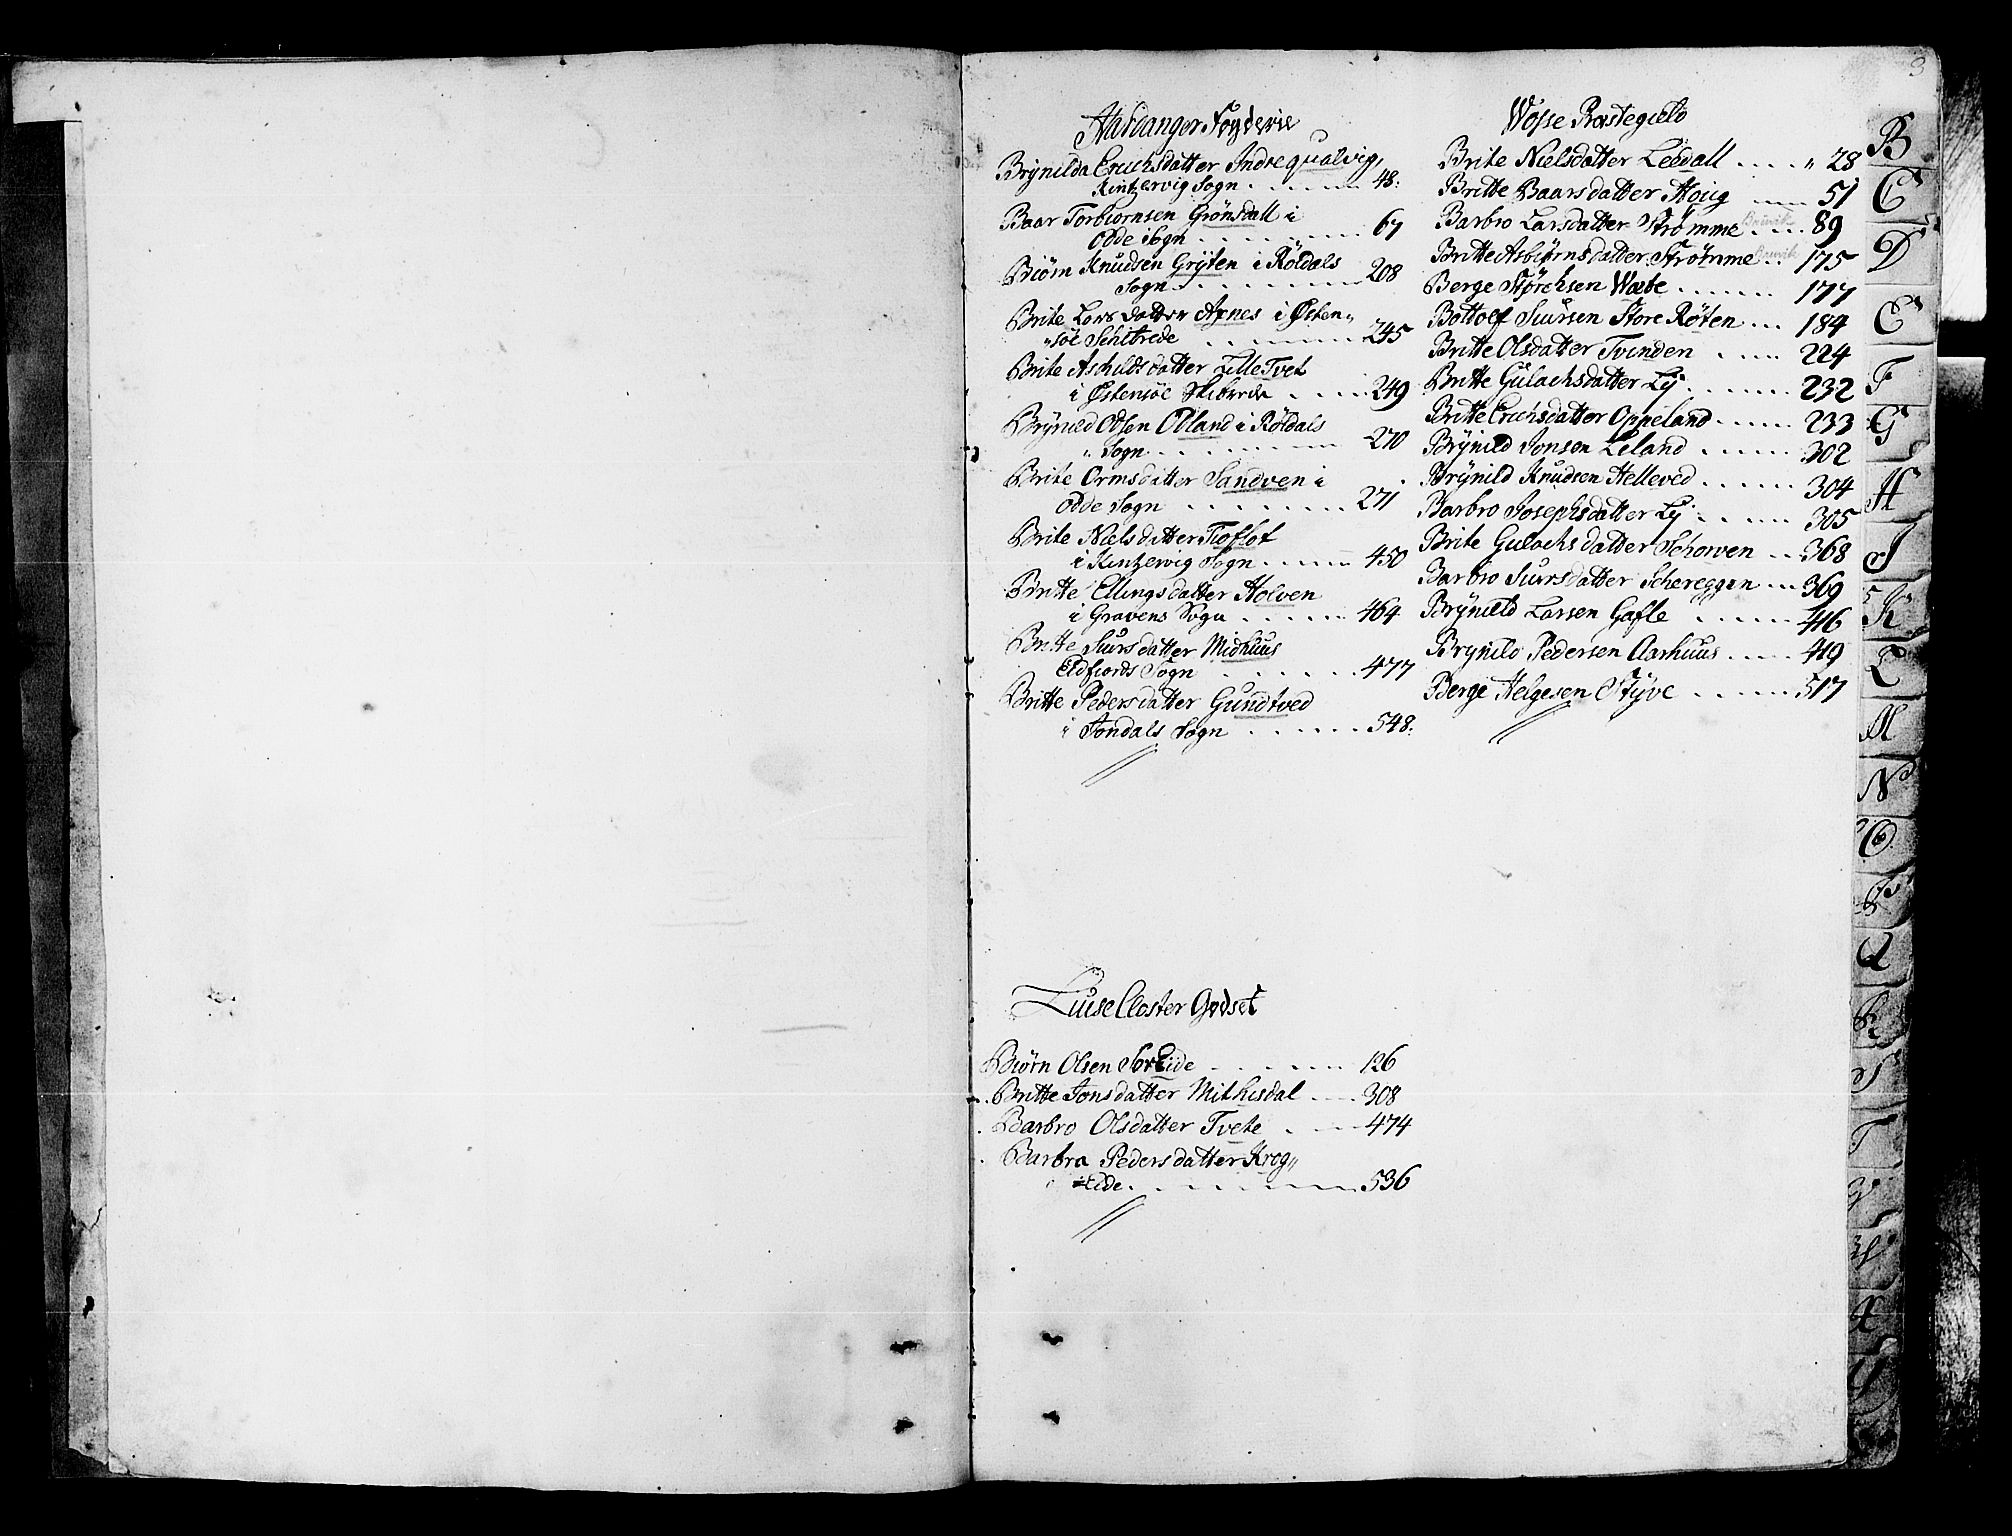 3
Hardanger Fogderie
Brynilda Erichsdatter Indrequalvig,
Kintzervig Sogn . . . . . . . 48:
Baar Torbiørnsen Grønsdall i
Odde Sogn . . . . . . . . . 67
Biørn Knudsen Gryten i Røldals
Sogn . . . . . . . . . 208
Brite Lars datter Axnes i Østen„
„søe Schibrede . . . . . . . 245
Brite Ashildsdatter Lille Tvet
i Østensøe Skibrede . . . . . 249
Brynild Olsen Odland i Røldals
„ Sogn . . . . . . . . . 270
Brite Ormsdatter Sandven i
Odde Sogn . . . . . . . . 271
Brite Niels datter Toflot
i Kintzervig Sogn . . . . . . 450
Britte Ellingsdatter Holven
i Gravens Sogn . . . . . . 464
Britte Siursdatter Midhuus
Eidfiords Sogn . . . . . . . 477
Britte Pedersdatter Gundtved
i Jondals Sogn . . . . . . 548:
Wosse Præstegield
Brite Nielsdatter Leedall . . . . „ 28
Britte Baarsdatter Houg . . . . 51
Barbro Larsdatter Strømme . . . . 89
Britte Asbiørnsdatter Strømme . . 175
Berge Størchsen Wæte . . . . . . . 177
Bottolf Siursen Store Røten . . . 184
Britte Olsdatter Tvinden . . . . . 224
Britte Gulachsdatter Ly . . . . . . 232
Britte Erichsdatter Oppeland . . . . . 233
Brynild Jonsen Leland . . . . . . 302
Brynild Knudsen Helleved . . . . . . 304
Barbro Josephsdatter Ly . . . . . 305
Brite Gulachs datter Schorven . . . 368
Barbro Siursdatter Schereggen . . . 369
Brynild Larsen Gafle . . . . . . 416
Brynild Pedersen Aarhuus . . . . . 419
Berge Helgesen Styve . . . . . . 517
Luise Closter Godset
Biørn Olsen Søreide . . . . . . . 126
Britte Jonsdatter Mithisdal . . . . 308
Barbro Olsdatter Tvete . . . . 474
Barbra Pedersdatter Krog„
Eide . . . . . . . . . . 536
B
C
D
E
F
G
H
J
K
L
M
N
O
P
Q
R
S
T
X
Y